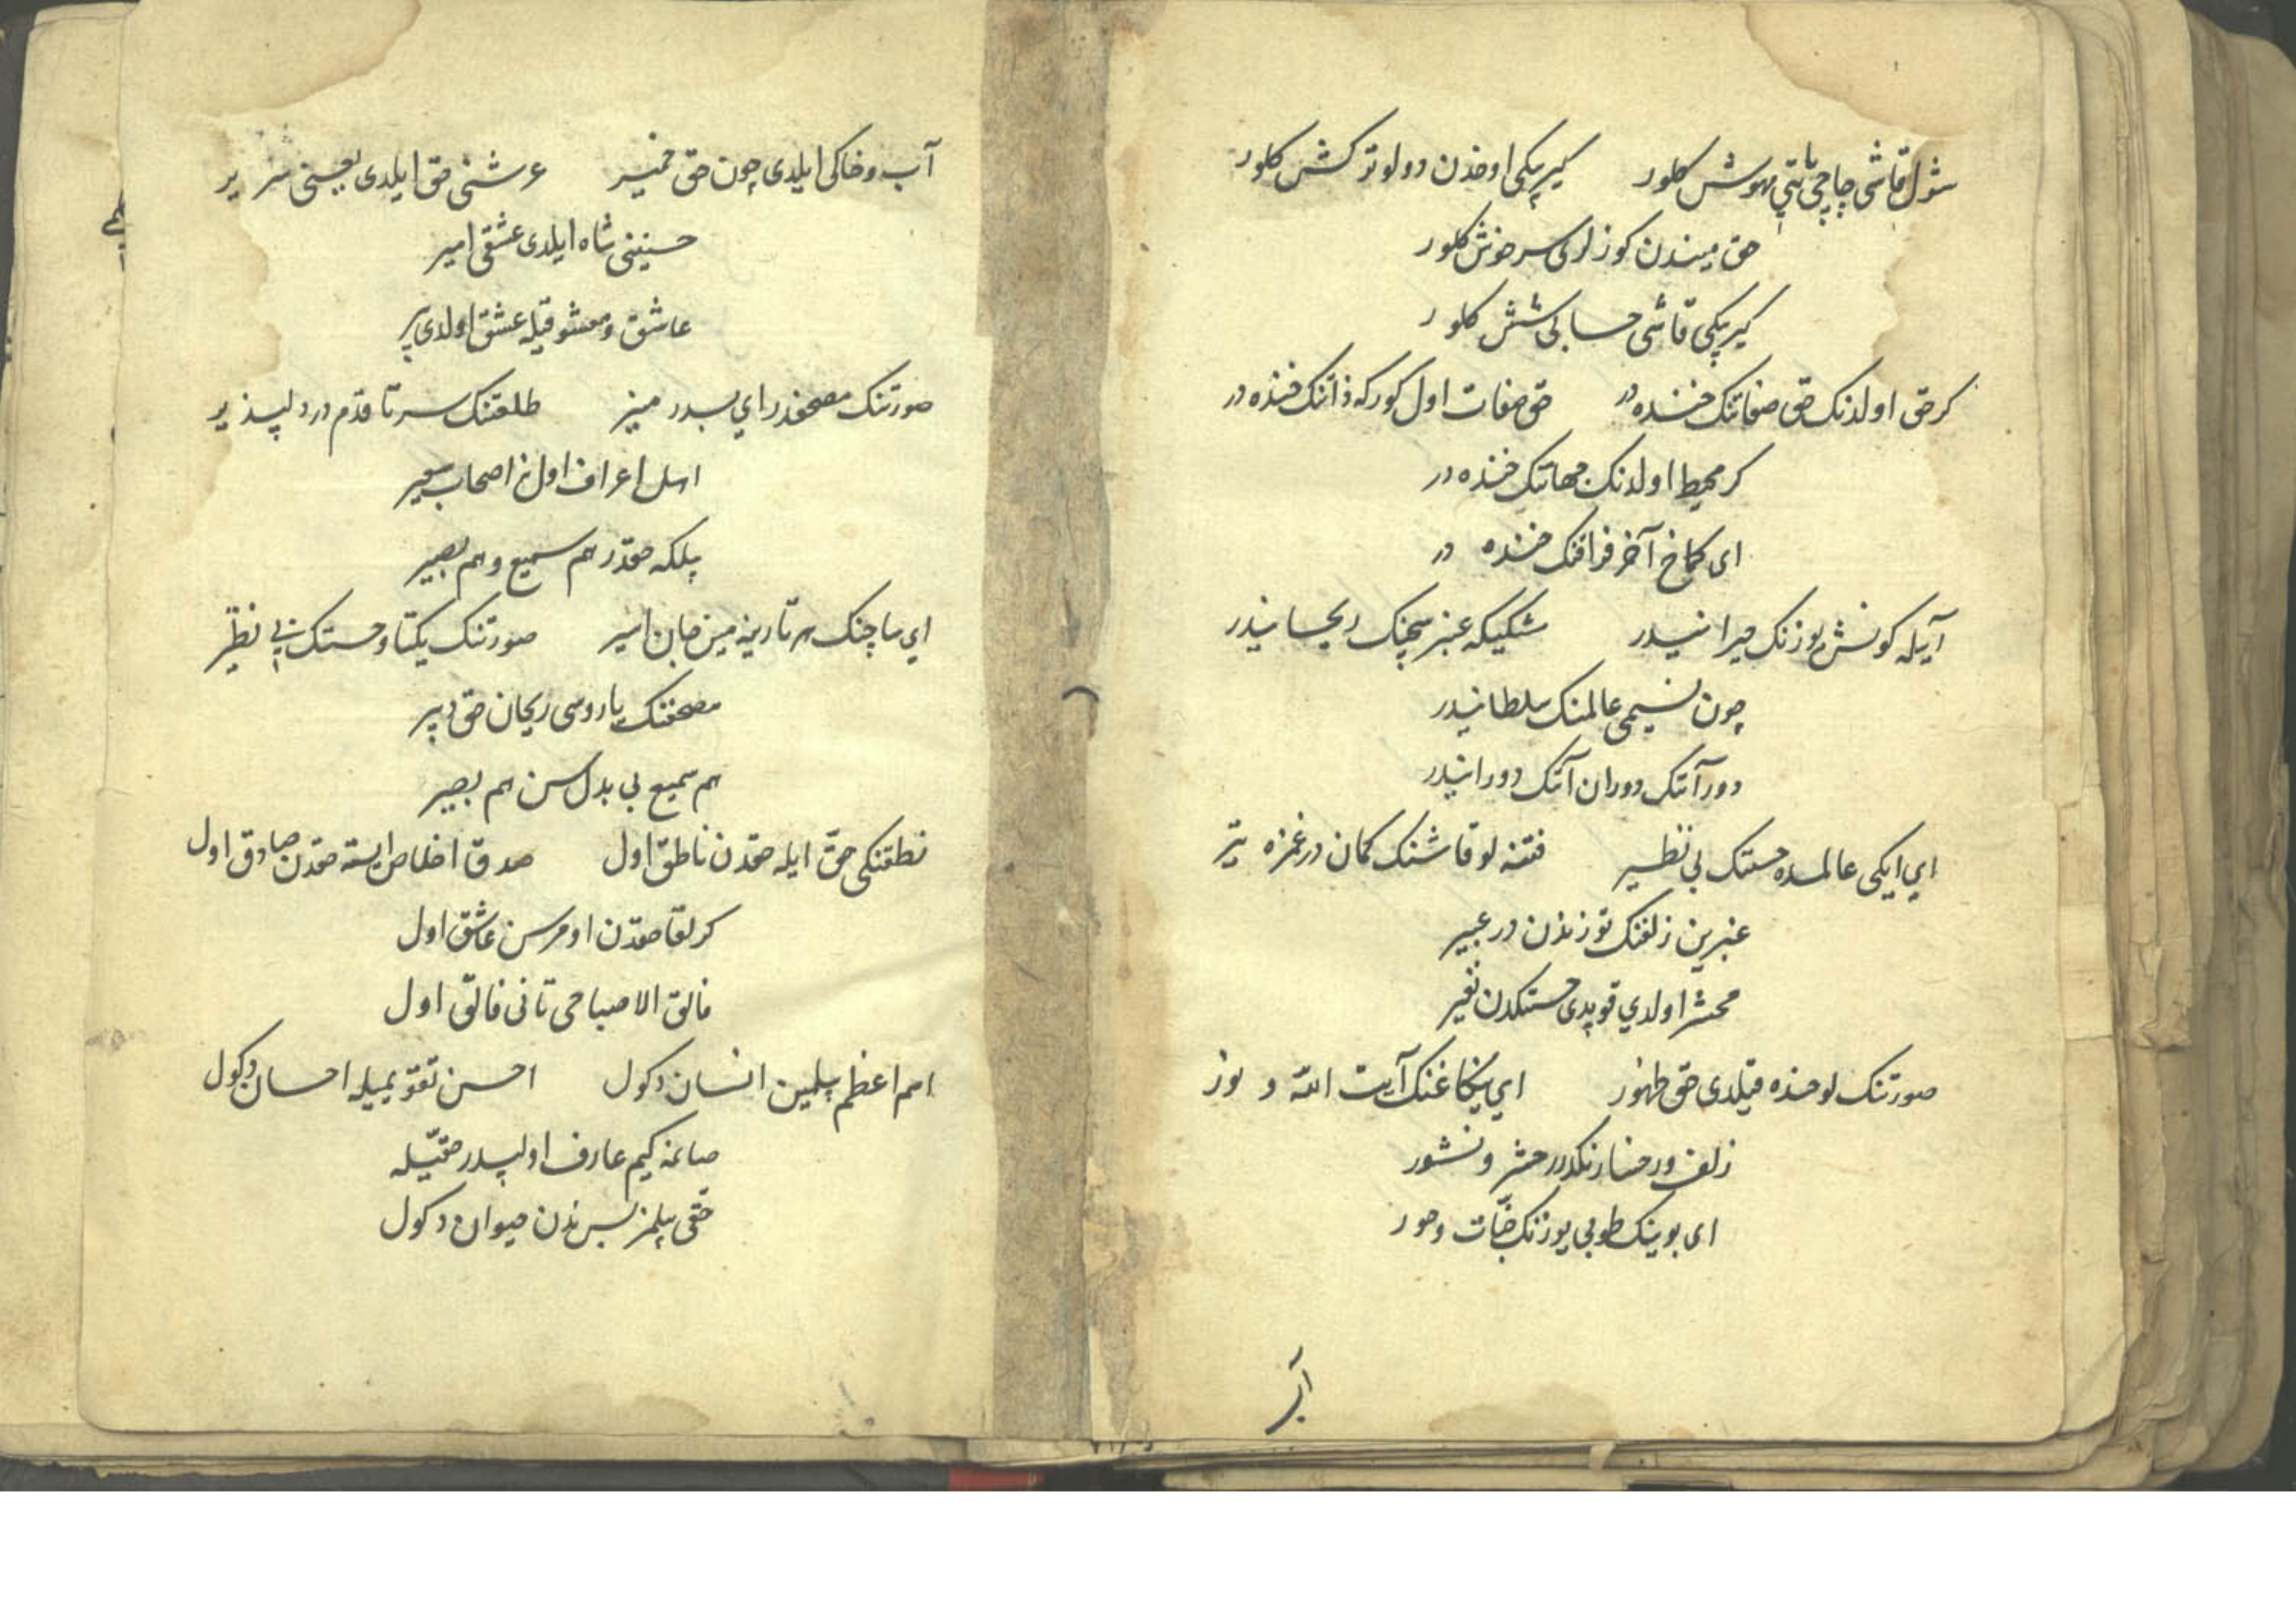 شول قاشی چاچی یاپی مهوش کلور کیرپکی اوخدن دولو ترکش کلور
حق میندن کوزلری سرخوش کلور
کیرپکی قاشی حسابی شش کلور
کر حق اولدنک حق صفاتنک خنده در حق صفات اول کورکه ذاتنک خنده در
کر محیط اولدنک جهاتنک خنده در
ای کماخ آخر فراقنک خنده در
آیله کونش یوزنک حیرانیدر مشکیله عنبر سچنک ریحانیدر
چون نسیمی عالمنک سلطانیدر
دور آنک دوران آنک دورانیدر
ای ایکی عالمده حسنک بی نظیر فتنه لو قاشنک کمان در غمزه تیر
عنبرین زلفنک توزندن در عبیر
محشر اولدی قوپدی حسنکدن نفیر
صورتنک لوحنده قیلدی حق ظهور ای یکاغنک آیت الله و نور
زلف و رخسارنکدر حشر و نشور
ای بوینک طوبی یوزنک جنات و حور
آب
آب و خاکی ایلدی چون حق خمیر عرشنی حق ایلدی یعنی سریر
حسنینی شاه ایلدی عشقی امیر
عاشق و معشوقیله عشق اولدی پیر
صورتنک مصحفدر ای بدر منیر طلعتنک سر تا قدم در دلپذیر
اهل اعراف اول نه اصحاب سعیر
بلکه حقدر هم سمیع و هم بصیر
ای ساچنک هر تارینه مین جان اسیر صورتنک یکتا و حسنک بی نظیر
مصحفنک یازوسی ریحان حق دبیر
هم سمیع بی بدل سن هم بصیر
نطقنکی حق ایله حقدن ناطق اول صدق اخلاص ایسته حقدن صادق اول
کر لقا حقدن اومرسن عاشق اول
فالق الاصباحی تانی فالق اول
اسم اعظم بلمین انسان دکول احسن تقویمیله احسان دکول
صانمه کیم عارف اولپدر حقیله
حقی بلمز بس ندن حیوان دکول